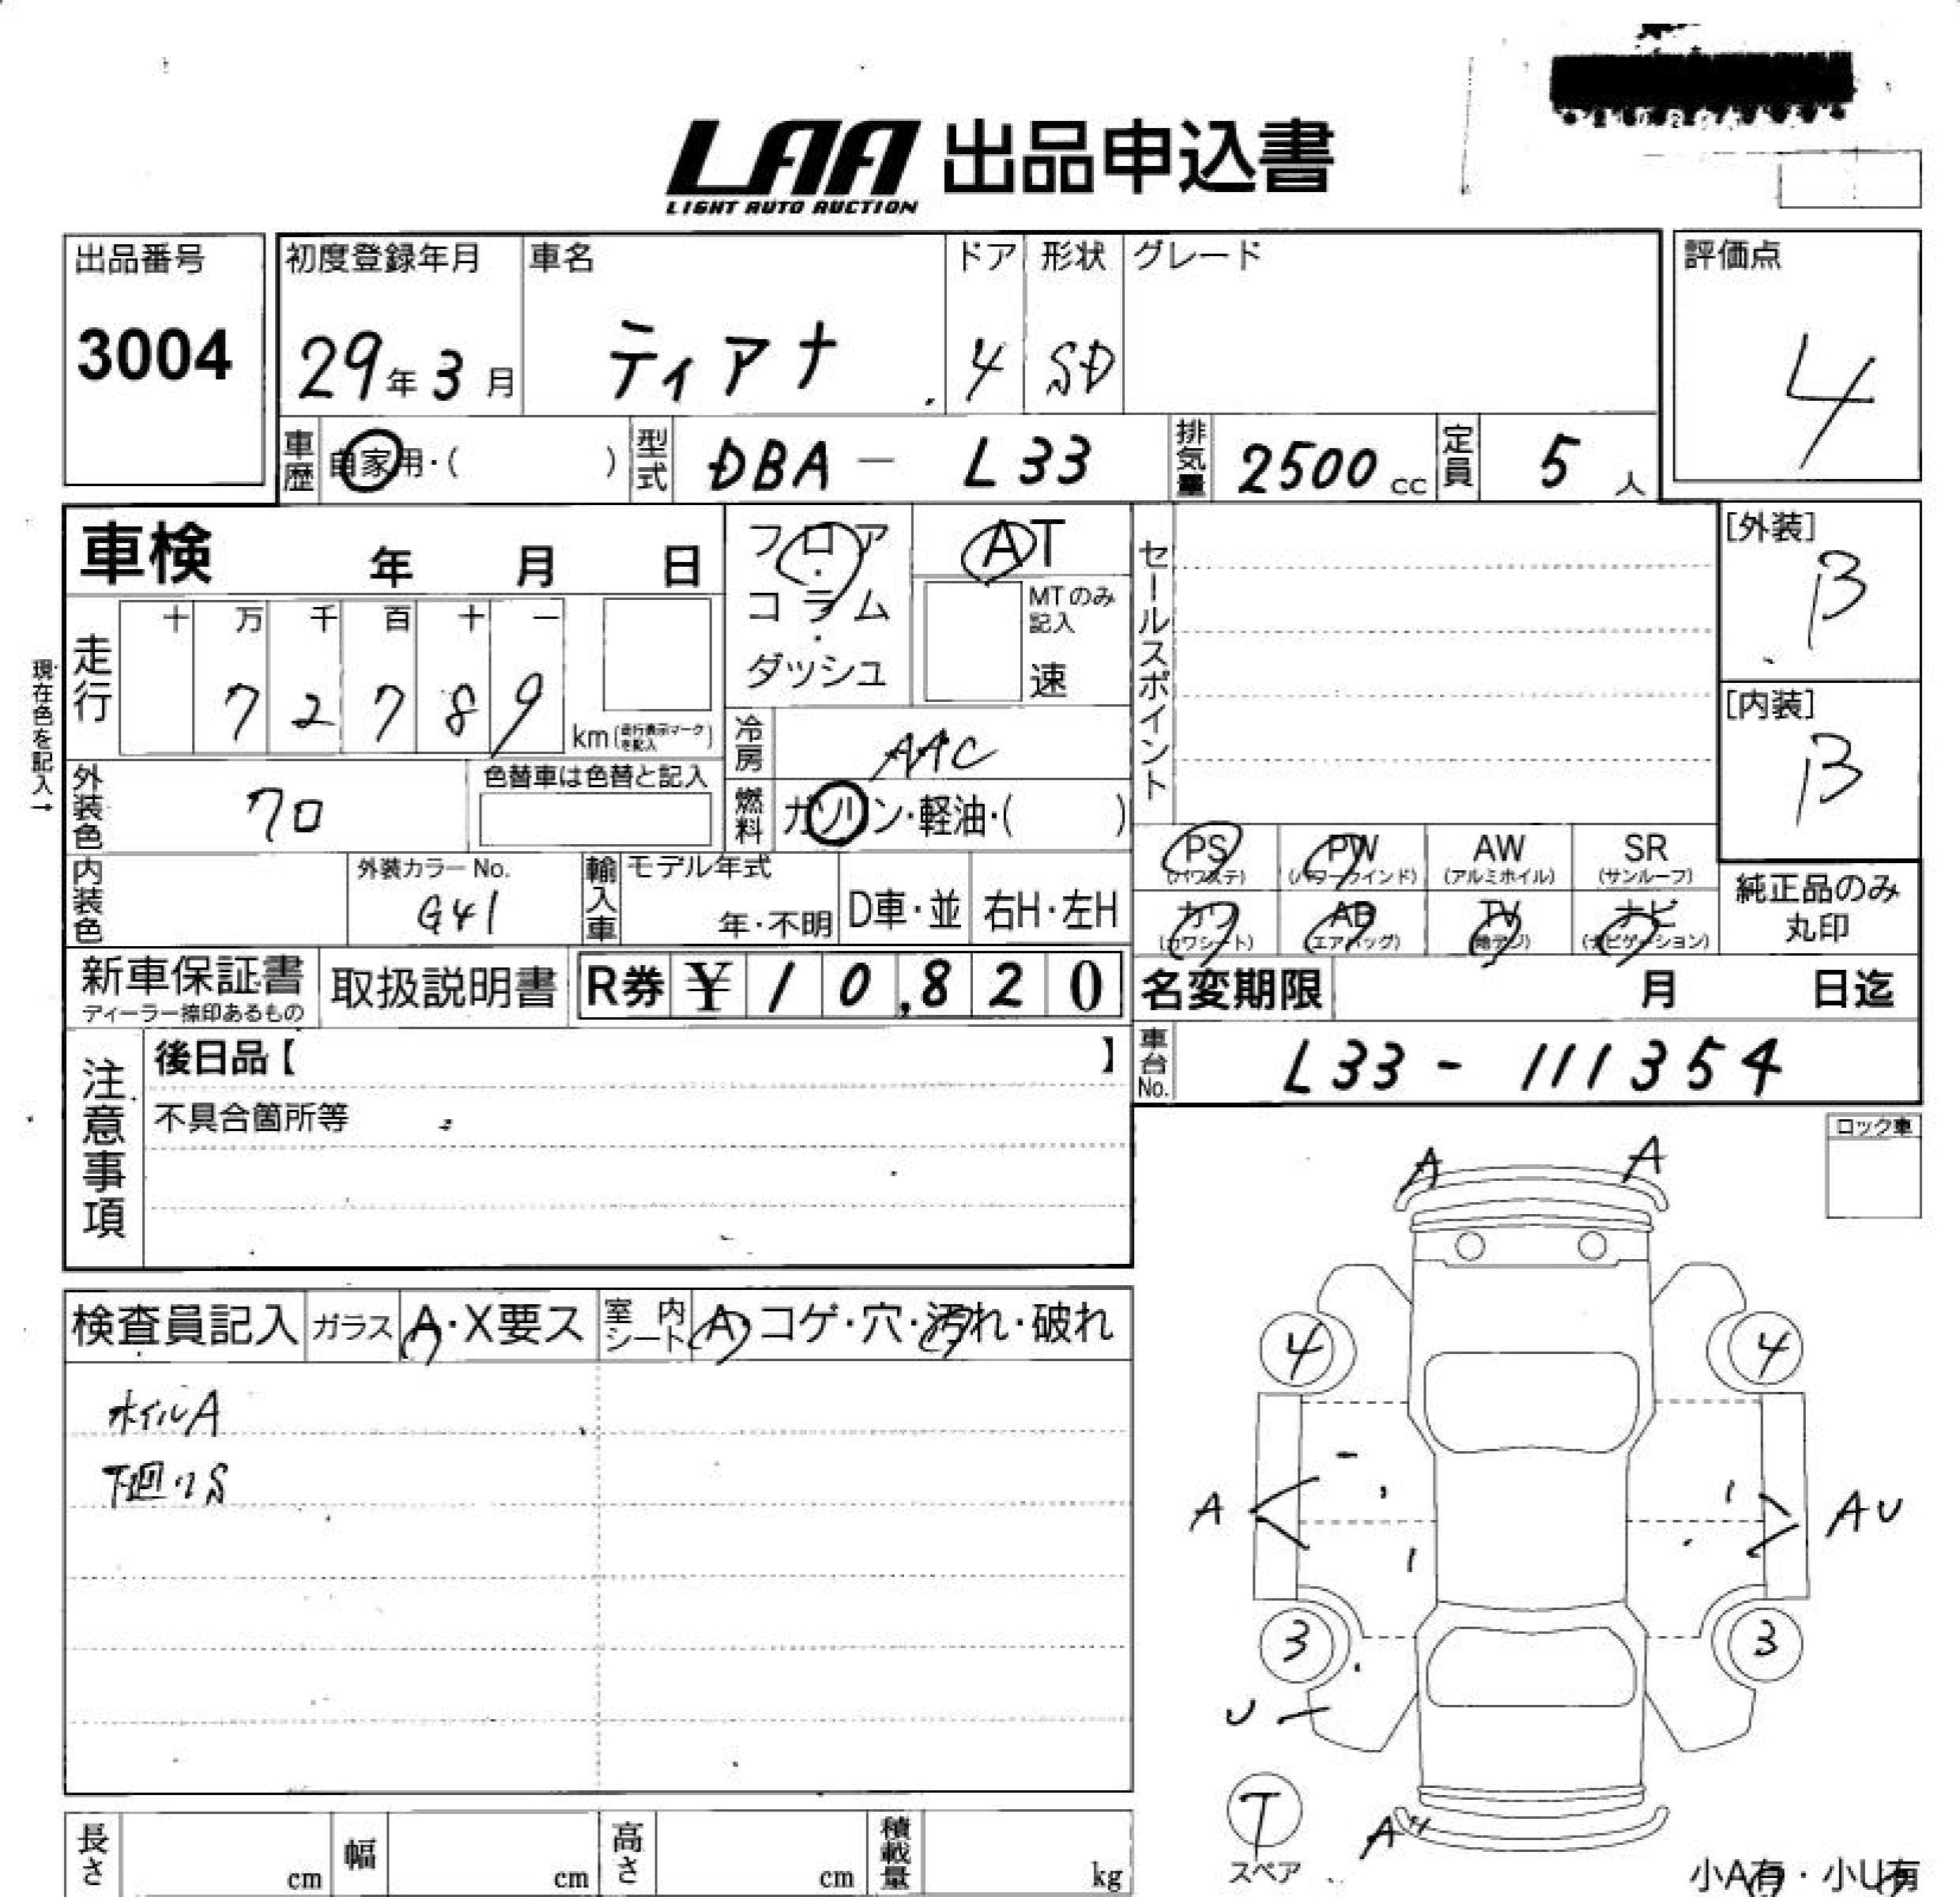 LAA 出品申込書
LIGHT AUTO AUCTION
出品番号
3004
初度登録年月
29年3月
車名
ティアナ
ドア
4
形状
SD
グレード
評価点
4
車歴
自家用・(　　)
型式
DBA - L33
排気量
2500cc
定員
5人
車検 年 月 日
フロア・コラム・ダッシュ
AT
MTのみ記入
速
セールスポイント
[外装]
B
[内装]
B
現在色を記入→
走行
十 万 千 百 十 一
7 2 7 8 9
km(走行表示マークを記入)
冷房
AAC
外装色
クロ
色替車は色替と記入
燃料
ガソリン・軽油・(　　)
内装色
外装カラーNo.
G41
輸入車
モデル年式
年・不明
D車・並
右H・左H
PS
(パワステ)
PW
(パワーウインド)
AW
(アルミホイル)
SR
(サンルーフ)
カワ
(カワシート)
AB
(エアバッグ)
TV
(地デジ)
ナビ
(ナビゲーション)
純正品のみ丸印
新車保証書
ディーラー捺印あるもの
取扱説明書
R券 ¥ 10,820
名変期限 月 日迄
車台No.
L33 - 111354
注意事項
後日品【　　】
不具合箇所等
ロック車
検査員記入
ガラス
A・X要ス
室内シート
A・コゲ・穴・汚れ・破れ
ホイルA
下廻りS
A A
4 4
A AU
3 3
U
T
スペア
A
長さ cm
幅 cm
高さ cm
積載量 kg
小A有・小U有